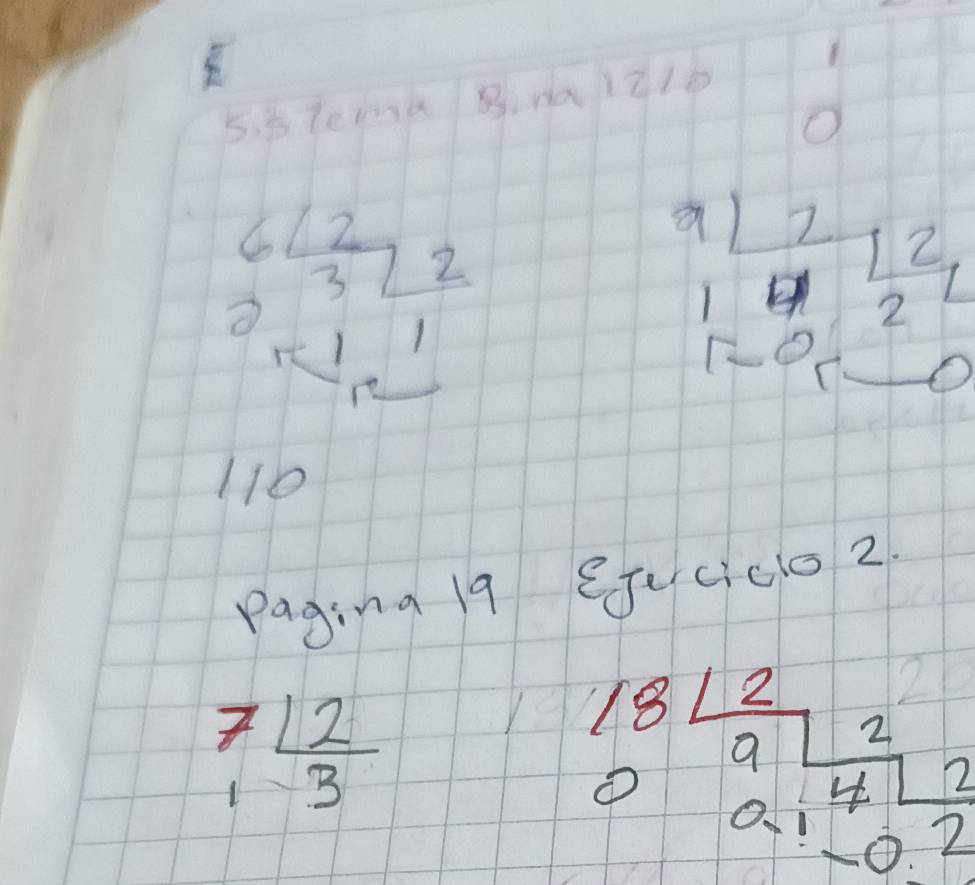 Sistema Binario 1
0
6 2 9 2
3 2 2
0 1 4 2
1 1 0 0
110
Pagina 19 Ejercicio 2.
7 2 18 2
1 3 0 9 2
0 1 4 2
0 2